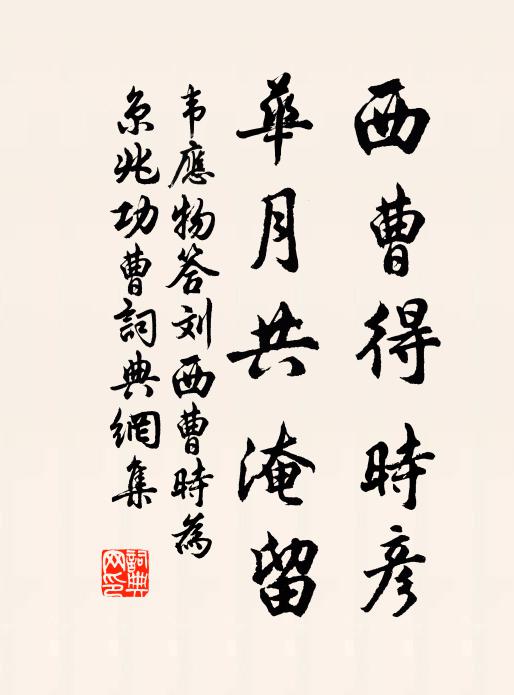 西曹得時彦
華月共淹留
韦應物答刘西曹時為
京兆功曹詞典網集
詞典
网印